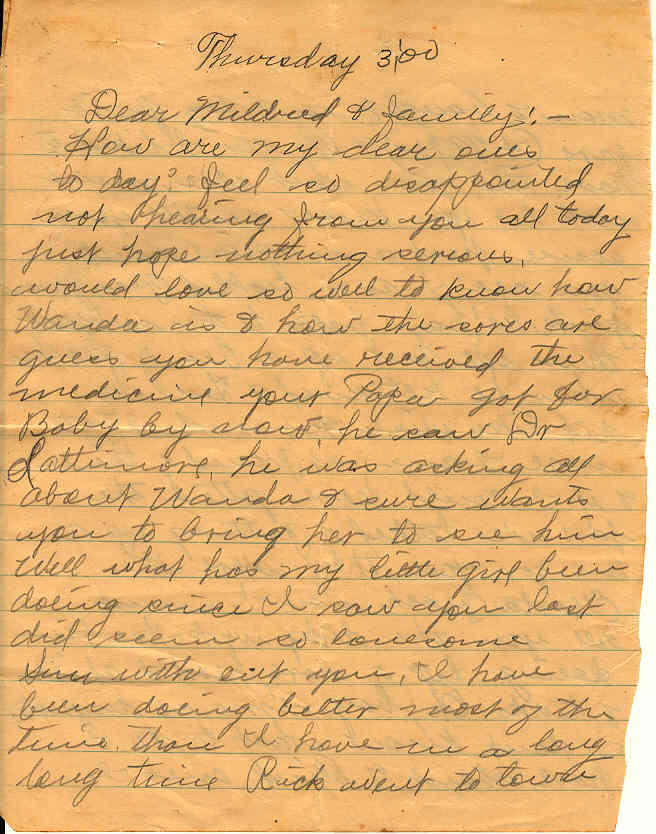 Thursday 3,00
Dear Mildred & family! -
How are my dear ones
to day? feel so disappointed
not hearing from you all today
just hope nothing serious,
would love so well to know how
Wanda is & how the sores are
guess you have received the
medicine your Papa got for
Baby by now, he saw Dr
Lattimore, he was asking all
about Wanda & sure wants
you to bring her to see him
Well what has my little girl been
doing since I saw you last
did seem so lonesome
Sun with out you, I have
been doing better most of the
time. than I have in a long
long time Rick went to town